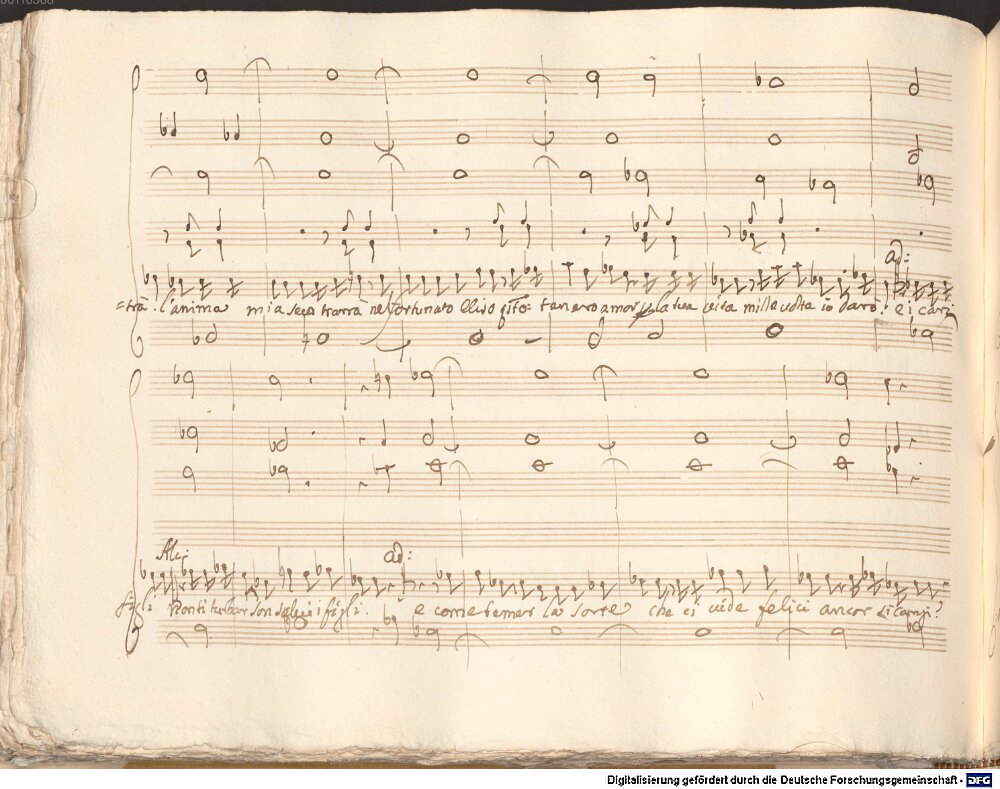 ad:
=trà. l'anima mia seco trarrà nel fortunato Eliso tenero amor la tua vita mille volte io darò! e i cari
Alc: ad:
figli Non ti turbar son salvi i figli. e come temer la sorte che ci vide felici ancor
Digitalisierung gefördert durch die Deutsche Forschungsgemeinschaft - DFG